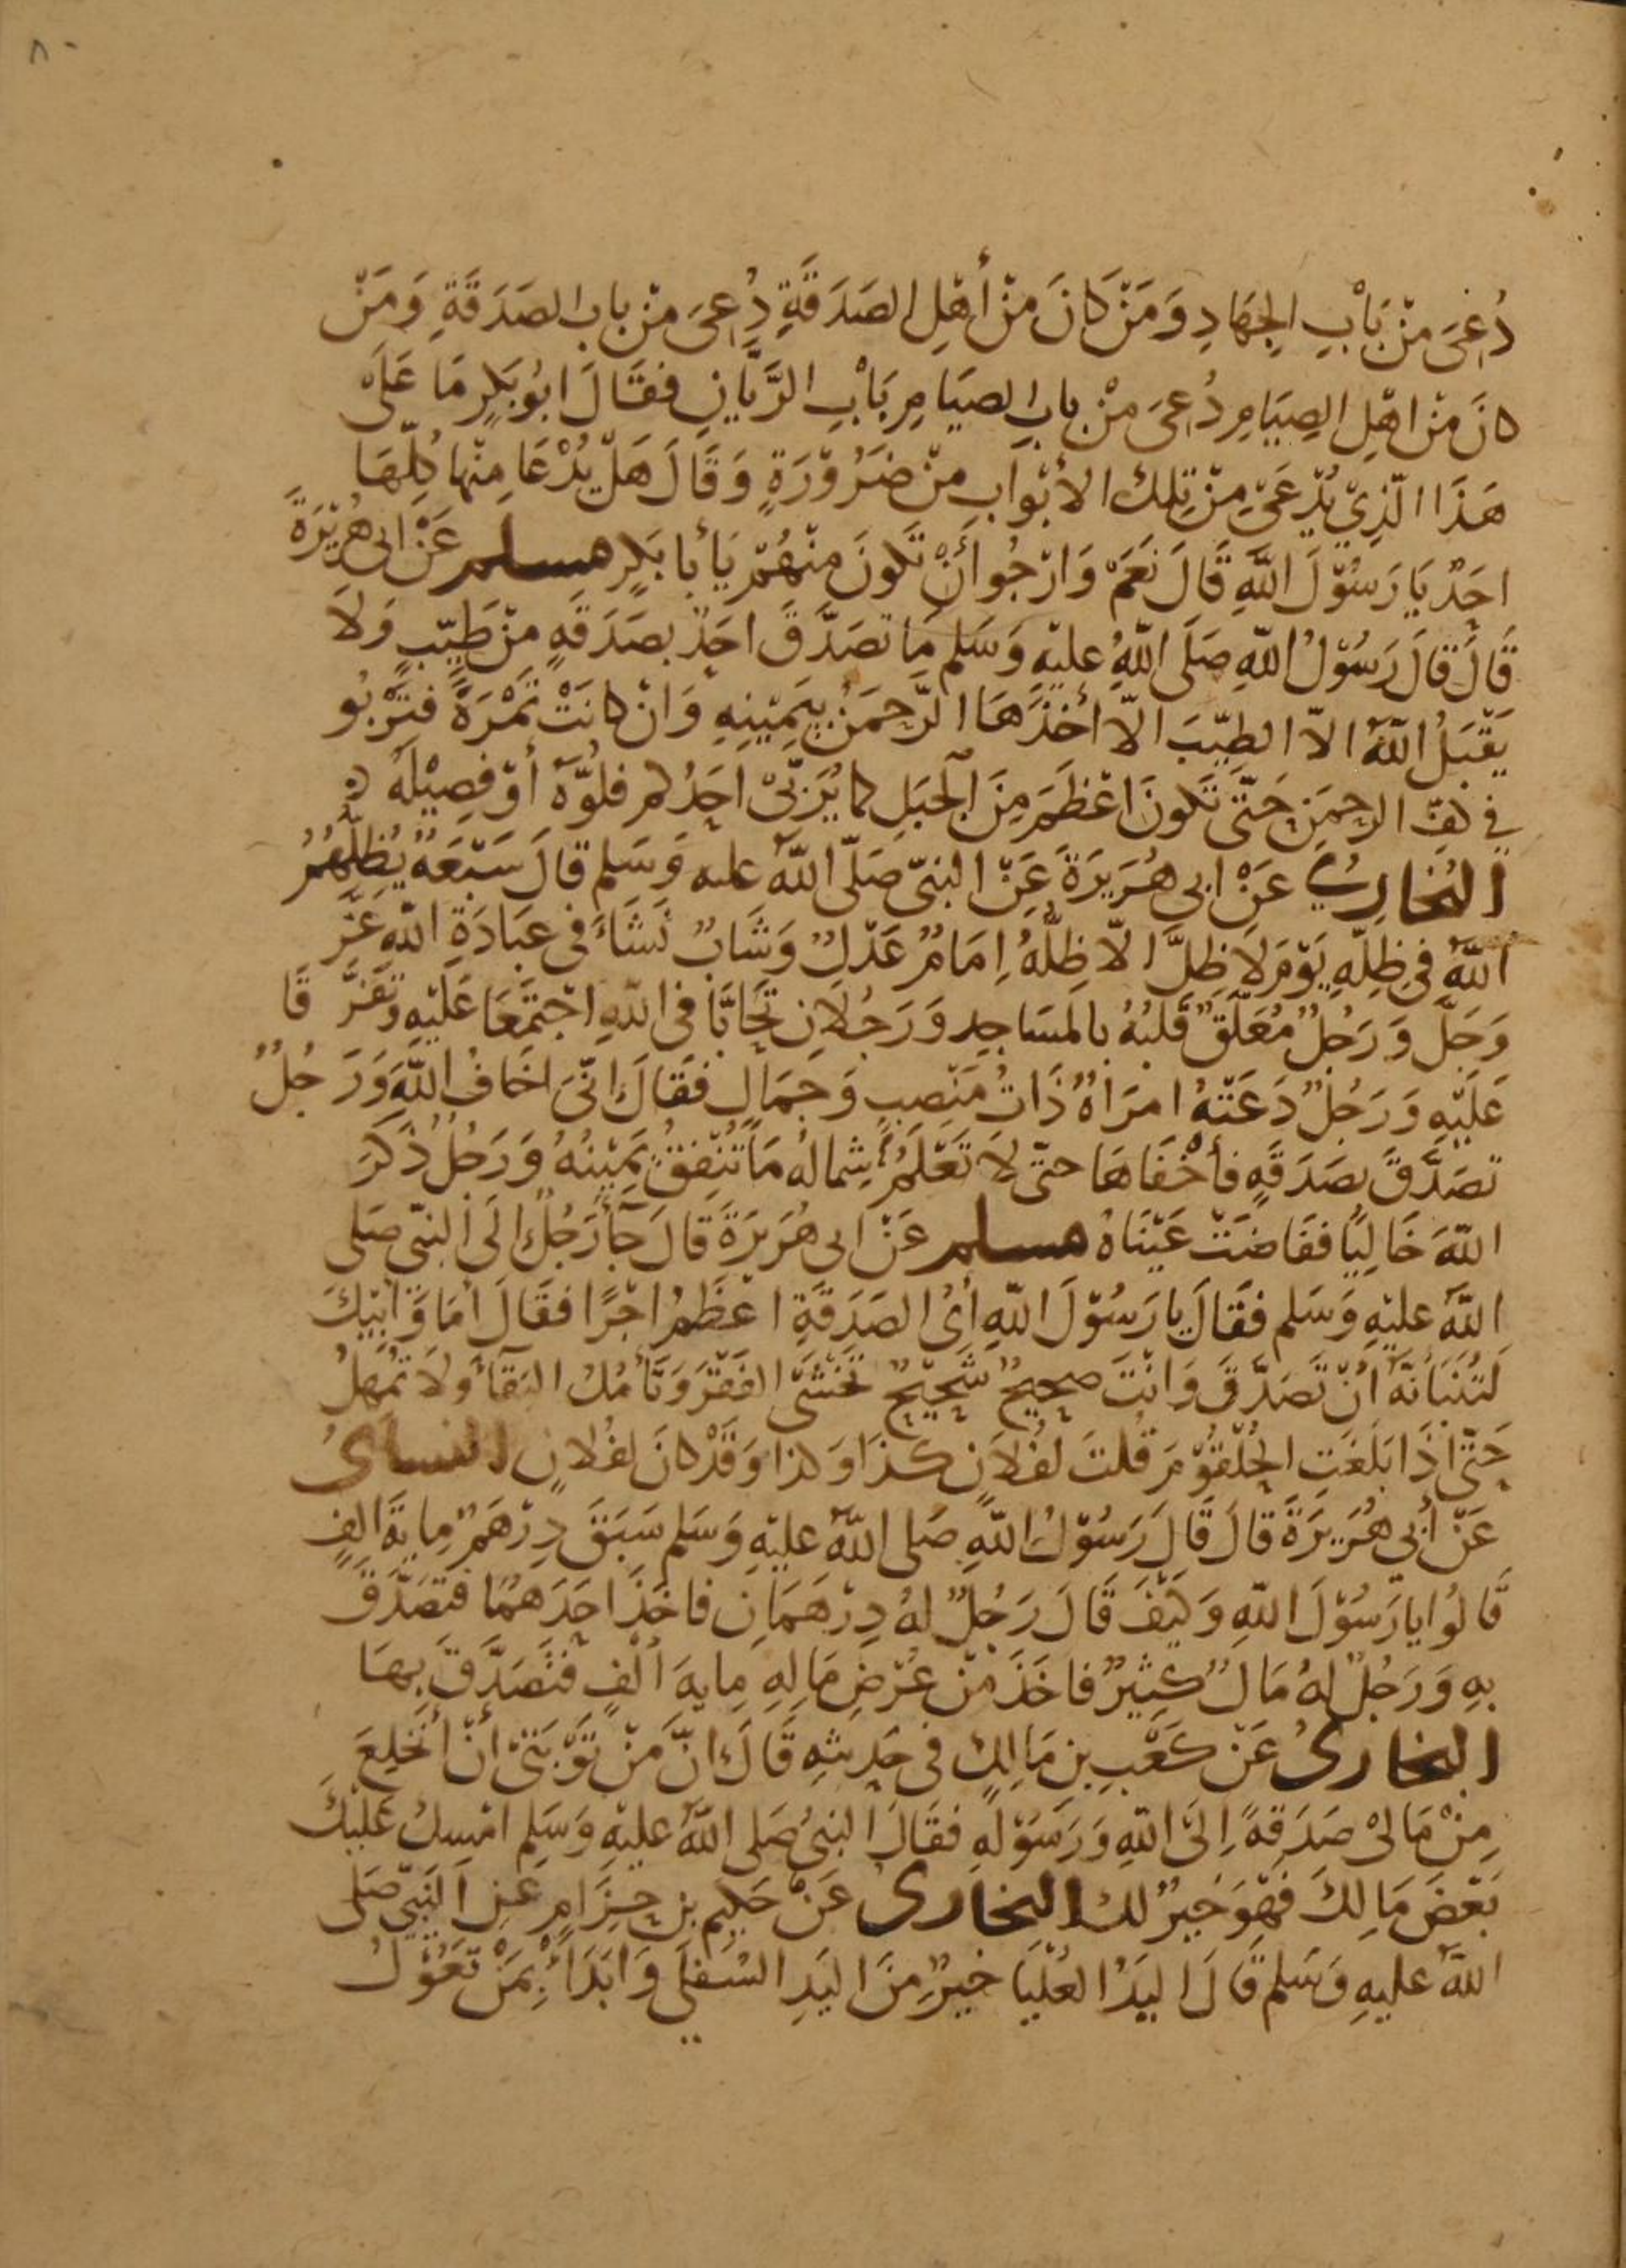 ٨٠
دُعِيَ مِنْ بَابِ الجِهَادِ وَمَنْ كَانَ مِنْ أَهْلِ الصَدَقَةِ دُعِيَ مِنْ باب الصَدَقَةِ وَمَنْ
كانَ مِنْ اهْلِ الصِيَامِ دُعِيَ مِنْ بابِ الصِيَامِ بَابِ الرَّيَّانِ فقَالَ ابُو بَكرٍ مَا عَلَى
هَذَا الَّذِيْ يُدْعَىْ مِنْ تِلِكَ الأبْوابِ مِنْ ضَرُوْرَةٍ وَقَالَ هَلْ يُدْعَا مِنْهَا كُلِّهَا
احَدٌ يَا رَسُوْلَ اللَّهِ قَالَ نَعَمْ وَارْجُوا أَنْ تَكونَ مِنْهُمْ يَأبا بَكرٍ مسلم عَنْ ابى هُرَيْرَةَ
قَالَ قالَ رَسُوْلُ اللهِ صَلَى اللهُ عليْهِ وَسَلم مَا تصَدَّقَ احَدٌ بصَدَقةٍ مِنْ طَيّبٍ وَلَا
يَقْبَلُ اللهُ الاّ الطيِّبَ الاّ أخَذَهَا الرّحمَنُ بِيَمِيْنِهِ وَانْ كانَتْ تَمْرَةً فتَرْبُو
في كفِّ الرحمَنِ حَتّى تَكونَ اعْظَمَ مِنَ الْجَبَلِ كما يُرَبّىْ احَدُكم فلُوَّهُ أوْ فصِيْلَهُ
البُخاريُ عَنْ ابى هُرَيرَةَ عَنِ النبيّ صَلّى اللهُ عليه وَسَلم قالَ سَبْعَةٌ يُظِلُّهُمُ
اللهُ في ظِلِّهِ يَوْمَ لا ظِلَّ الاّ ظِلُّهُ إمَامٌ عَدْلٌ وَشَابٌ نَشَأَ فى عِبَادَةِ اللهِ عَزَّ
وَجَلَّ وَرَجُلٌ مُعَلّقٌ قَلبُهُ بالمَسَاجِدِ وَرَجُلَانِ تَحَابَّا فى اللهِ اجْتَمَعَا عَلَيْهِ وَتفَرَّقَا
عَلَيْهِ وَرَجُلٌ دَعَتْهُ امرَاةٌ ذَاتُ مَنْصِبٍ وَجَمَالٍ فَقَالَ انّىَ اخَافُ اللهَ وَرَجُلٌ
تصَدَّقَ بصَدَقةٍ فأخْفَاهَا حتّى لا تَعْلَمُ شِمالهُ مَا تُنْفِقُ يَمِيْنُهُ وَرَجُلٌ ذَكَرَ
اللهَ خَالِيًا ففَاضَتْ عَيْنَاهُ مسلم عَنْ ابى هُرَيرَةَ قَالَ جَأَ رَجُلٌ الَى النبيّ صَلى
اللهُ عليْهِ وَسَلم فقَالَ يا رَسُوْلَ اللهِ أىُ الصَدَقَةِ اعْظَمُ اجْرًا فقَالَ أمَا وَابَيْكَ
لَتُنَبَأنَّهُ انْ تَصَدَّقَ وَانْتَ صحِيحٌ شَحِيْحٌ تَخْشَى الفَقْرَ وَتَأمُلُ البَقَآءَ وَلَا تُمهِلُ
حَتّى اذَا بَلَغَتِ الحُلْقُوْمَ قُلتَ لفُلَانٍ كَذَا وَكذا وَقدْ كانَ لفُلانٍ النساىُ
عَنْ أبي هُرَيرَةَ قالَ قَالَ رَسُوْلُ اللهِ صَلى اللهُ عليْهِ وَسَلم سَبَقَ دِرْهَمٌ مِايَةَ الفٍ
قَالُوا يا رَسُوْلَ اللهِ وَكيْفَ قَالَ رَجُلٌ لهُ دِرْهَمَانِ فاخَذَ احَدَهُمَا فتَصَدَّقَ
بهِ وَرَجُلٌ لهُ مَالٌ كَثِيْرٌ فاخَذَ مِنْ عُرْضِ مَالِهِ مِايةَ ألْفٍ فَتَصَدَّقَ بهَا
البخارىُ عَنْ كَعْبِ بنِ مَالِكٍ فى حَدِيثهِ قَالَ انّ مِنْ تَوْبَتىْ انْ أنْخَلِعَ
مِنْ مَالىْ صَدَقةً إلىَ اللهِ وَرَسُوْلهِ فقَالَ النبيُ صَلى اللهُ عليْهِ وَسَلم امْسِكْ عَليْكَ
بَعْضَ مَالِكَ فَهْوَ خَيرٌ لكَ البخارى عَنْ حَكِيمِ بنِ حِزَامٍ عَنِ النَبيّ صَلى
اللهُ عليهِ وَسَلم قَالَ اليَدُ العُلْيَا خيْرٌ مِنَ اليَدِ السُفلَى وَابَدَأْ بِمَنْ تَعُوْلُ